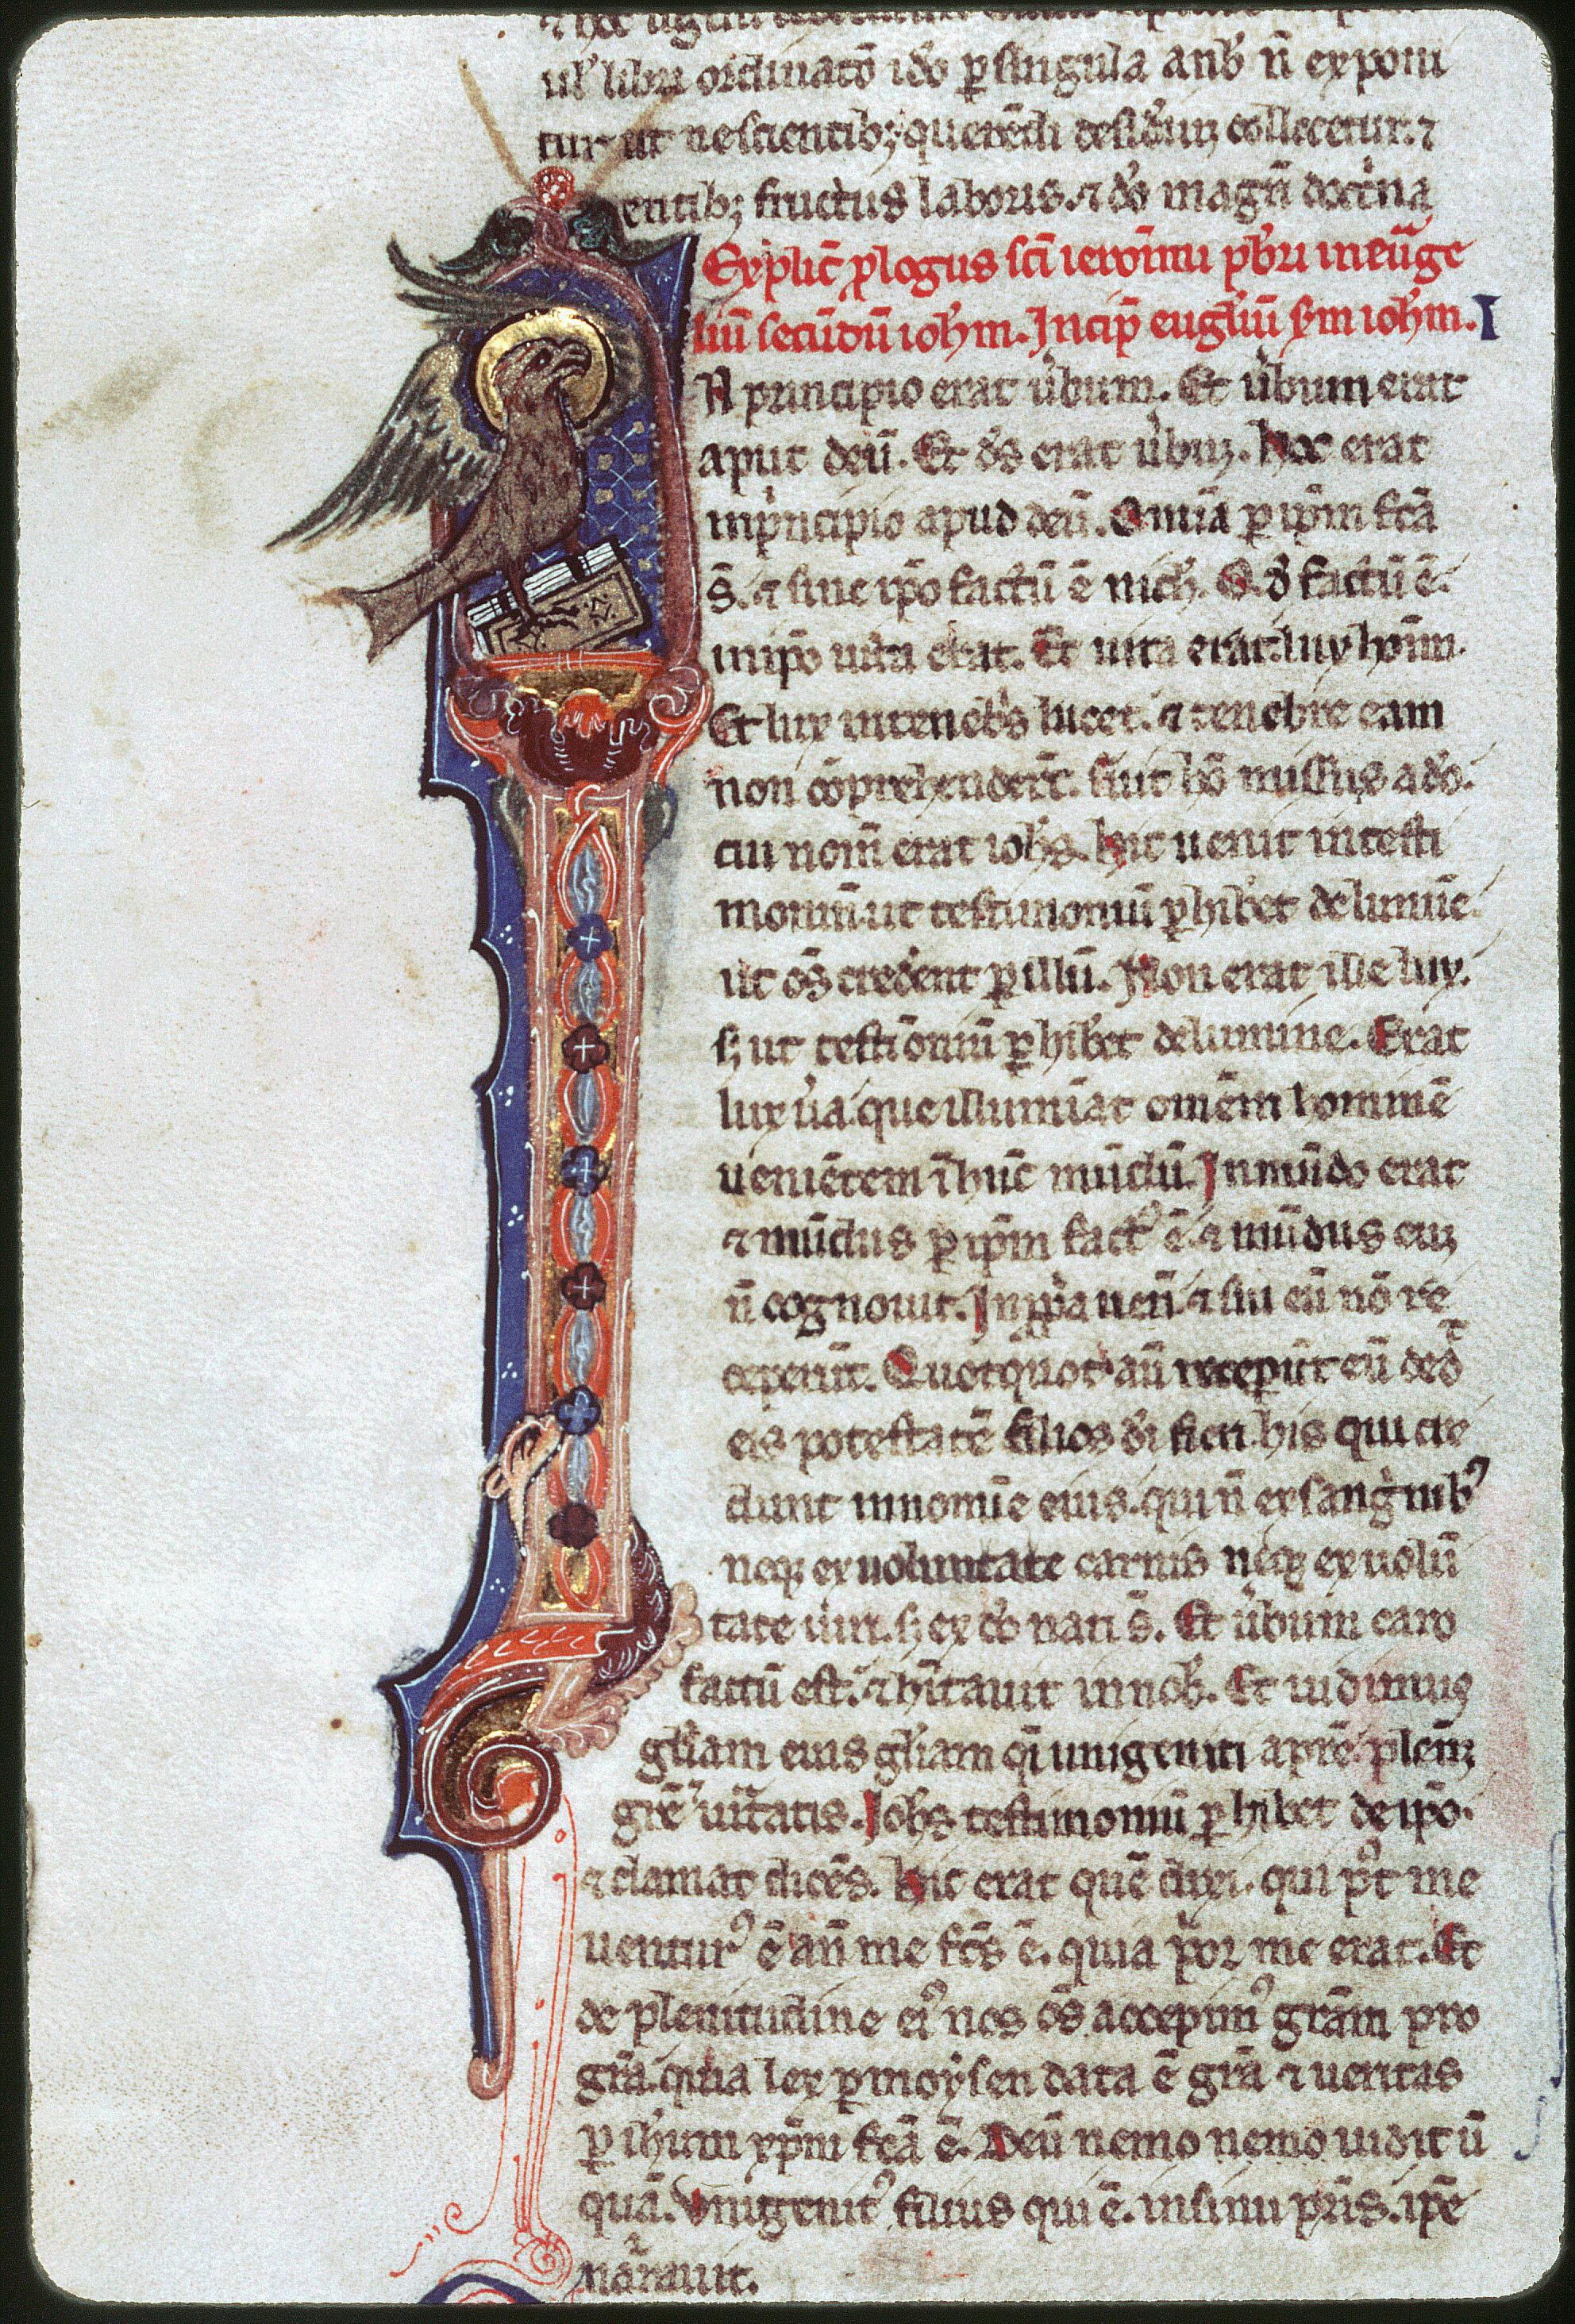 ul' libri ordinatō idō ꝑ singula a nob̄ n̄ exponi
tur ut nescientibꝫ querēdi desidiuꝫ collocetur. ⁊
entibꝫ fructus laboris. ⁊ dō magn̄ doctͥna
Explic̄ ꝓlogus sc̄i ieronimi p̄bri in eūge
liū secūdū ioh'm. Incip̄ eugl'iū ẜm ioh'm. I
N principio erat ūbum. Et ūbum erat
aput deū. Et d's erat ūbuꝫ. hoc erat
in pͥncipio apud deū. Omīa ꝑ ip̄m fc̄a
s̄. ⁊ sine ip̄o factū ē nich'. Q̄d factū ē.
in ip̄o uita erat. Et uita erat lux hoīm.
Et lux in tenebͥs lucet. ⁊ tenebre eam
non cōprehender̄t. fuit hō missus a dō.
cui nom̄ erat ioh's. hic uenit in testi
moniū ut testimoniū ꝑhibet de lumīe.
ut ōs creder̄ent ꝑ illū. Non erat ille lux.
sꝫ ut testiōniū ꝑhibet de lumine. Erat
lux ūa que illumīat omēm hominē
ueniētem ī hūc mūdū. In mūdo erat
⁊ mūdus ꝑ ip̄m fact' ē ⁊ mūdus euꝫ
n̄ cognouit. In ꝓpͥa ueń ⁊ sui eū nō re
ceperūt. Quotquot aū receperūt eū ded̄
eis potestatē filios d'i fieri his qui cre
dunt in nomīe eius. qui n̄ ex sangͥnibꝰ
neqꝫ ex uoluntate carnis neqꝫ ex uolū
tate uiri. sꝫ ex dō nati s̄. Et ūbum caro
factū est. ⁊ hītauit in nob̄. Et uidimus
gl'iam eius gl'iam qͥ unigeniti a pr̄e plēuꝫ
gr̄e ⁊ ūitatis. Ioh's testimoniū ꝑhibet de ip̄o.
⁊ clamat dicēs. hic erat quē dixi. qui pꝰt me
uenturꝰ ē an̄ me fc̄s ē. quia pͥor me erat. Et
de plenitudine eiꝰ nos ōs accepimꝰ gr̄am pro
gr̄a. quia lex ꝑ moysen data ē gr̄a ⁊ ueritas
ꝑ ih'um xp̄m fc̄a ē. Deū nemo nemo uidit ū
quā. Vnigenitꝰ filius qui ē. in sinu pr̄is. ip̄e
nārauit.